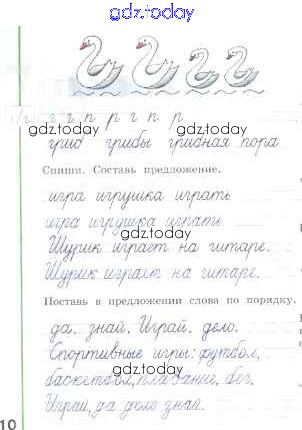 gdz.today
г г п р г г п р
gdz.today gdz.today
гриб грибы грибная пора
Спиши. Составь предложение.
игра игрушка играть
gdz.today
игра игрушка играть
Шурик играет на гитаре.
Шурик играет на гитаре.
Поставь в предложении слова по порядку.
gdz.today gdz.today
да. знай. Играй. дело.
Спортивные игры: футбол,
баскетбол, плавание, бег.
gdz.today
Играй, да дело знай.
10
gdz.today